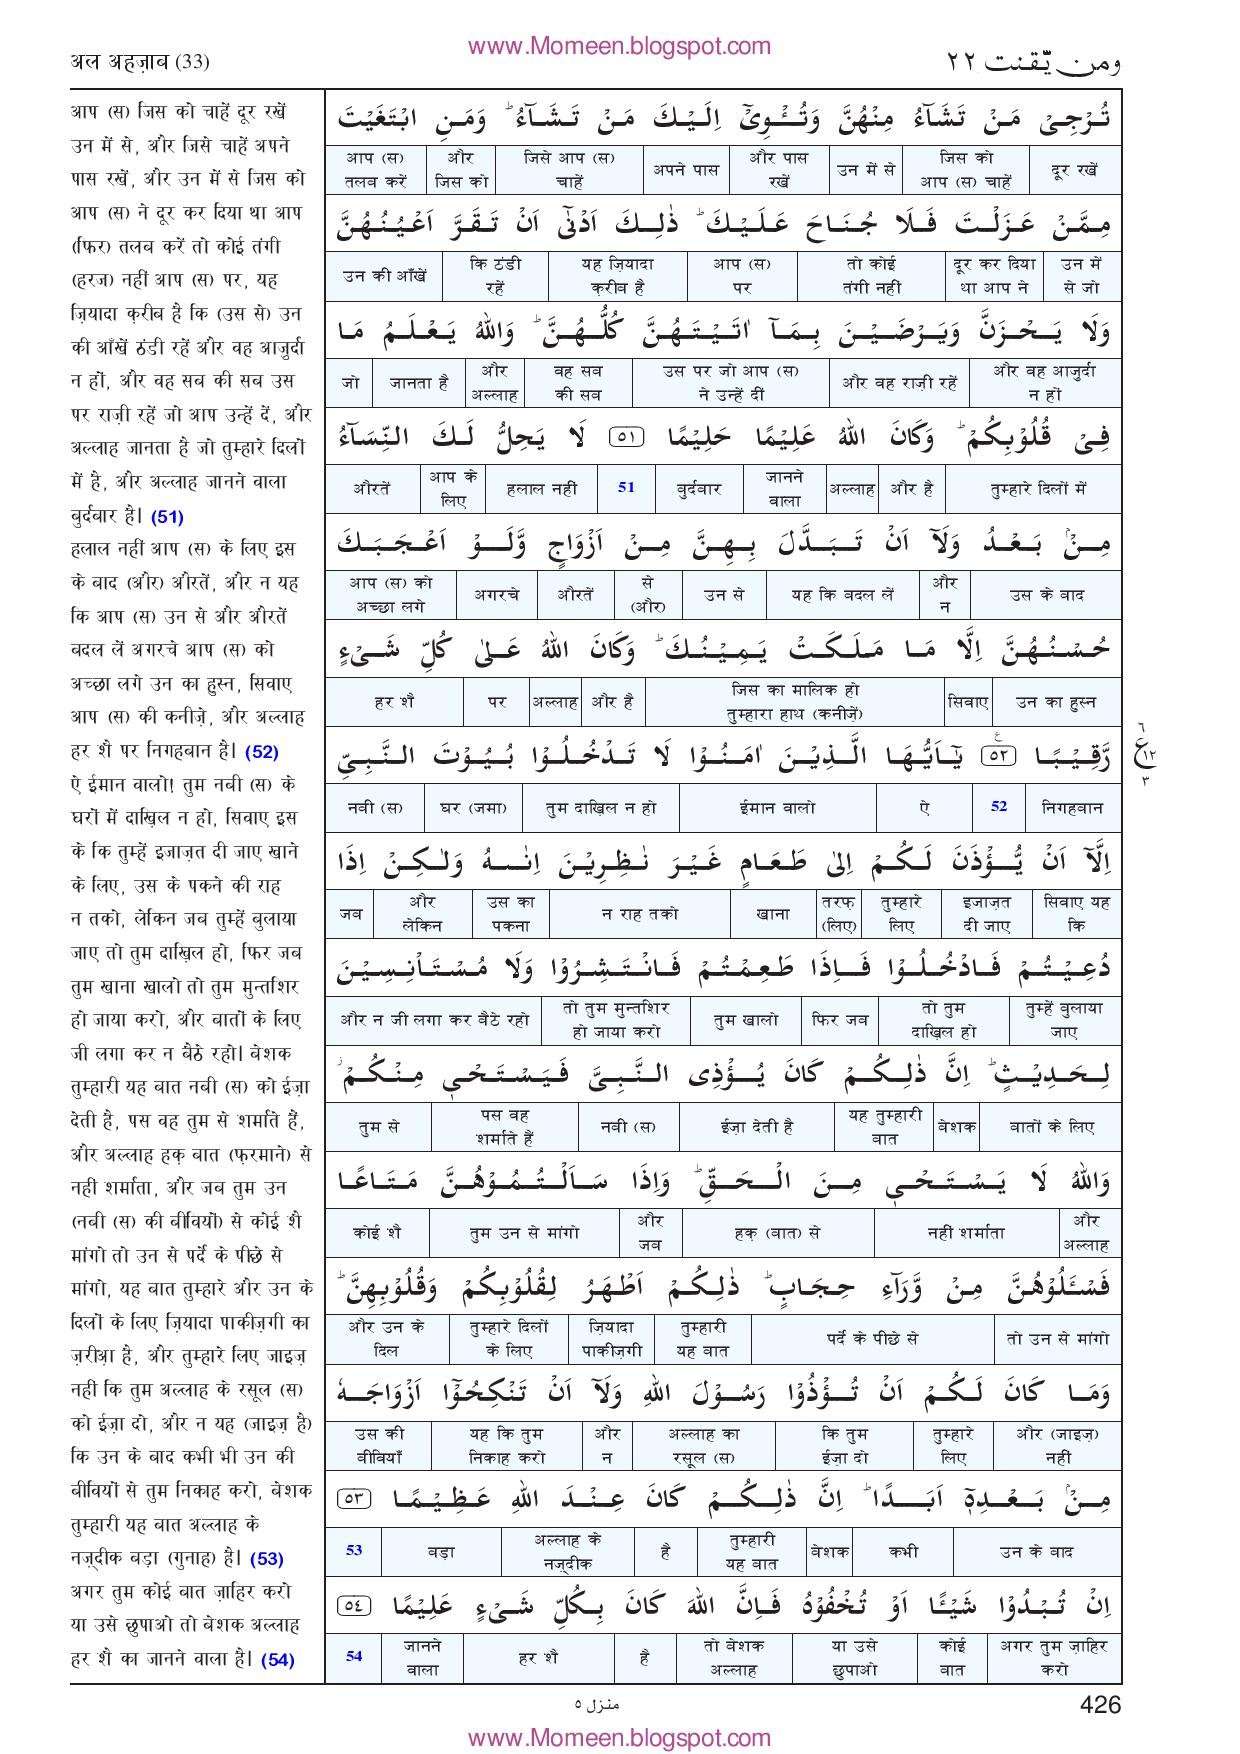 www.Momeen.blogspot.com
अल अहज़ाब (33)
ومن يّقنت ٢٢
आप (स) जिस को चाहें दूर रखें
उन में से, और जिसे चाहें अपने
पास रखें, और उन में से जिस को
आप (स) ने दूर कर दिया था आप
(फिर) तलब करें तो कोई तंगी
(हरज) नहीं आप (स) पर, यह
ज़ियादा क़रीब है कि (उस से) उन
की आँखें ठंडी रहें और वह आज़ुर्दा
न हों, और वह सब की सब उस
पर राज़ी रहें जो आप उन्हें दें, और
अल्लाह जानता है जो तुम्हारे दिलों
में है, और अल्लाह जानने वाला
बुर्दबार है। (51)
हलाल नहीं आप (स) के लिए इस
के बाद (और) औरतें, और न यह
कि आप (स) उन से और औरतें
बदल लें अगरचे आप (स) को
अच्छा लगे उन का हुस्न, सिवाए
आप (स) की कनीज़े, और अल्लाह
हर शै पर निगहबान है। (52)
ऐ ईमान वालो! तुम नबी (स) के
घरों में दाख़िल न हो, सिवाए इस
के कि तुम्हें इजाज़त दी जाए खाने
के लिए, उस के पकने की राह
न तको, लेकिन जब तुम्हें बुलाया
जाए तो तुम दाख़िल हो, फिर जब
तुम खाना खालो तो तुम मुन्तशिर
हो जाया करो, और बातों के लिए
जी लगा कर न बैठे रहो। बेशक
तुम्हारी यह बात नबी (स) को ईज़ा
देती है, पस वह तुम से शर्माते हैं,
और अल्लाह हक़ बात (फ़रमाने) से
नहीं शर्माता, और जब तुम उन
(नबी (स) की बीवियों) से कोई शै
मांगो तो उन से पर्दे के पीछे से
मांगो, यह बात तुम्हारे और उन के
दिलों के लिए ज़ियादा पाकीज़गी का
ज़रीआ़ है, और तुम्हारे लिए जाइज़
नहीं कि तुम अल्लाह के रसूल (स)
को ईज़ा दो, और न यह (जाइज़ है)
कि उन के बाद कभी भी उन की
बीवियों से तुम निकाह करो, बेशक
तुम्हारी यह बात अल्लाह के
नज़्दीक बड़ा (गुनाह) है। (53)
अगर तुम कोई बात ज़ाहिर करो
या उसे छुपाओ तो बेशक अल्लाह
हर शै का जानने वाला है। (54)
تُرْجِىْ مَنْ تَشَآءُ مِنْهُنَّ وَتُـْٔوِىْٓ اِلَيْكَ مَنْ تَشَآءُ ؕ وَمَنِ ابْتَغَيْتَ
दूर रखें | जिस को आप (स) चाहें | उन में से | और पास रखें | अपने पास | जिसे आप (स) चाहें | और जिस को | आप (स) तलब करें
مِمَّنْ عَزَلْتَ فَلَا جُنَاحَ عَلَيْكَ ؕ ذٰلِكَ اَدْنٰٓى اَنْ تَقَرَّ اَعْيُنُهُنَّ
उन में से जो | दूर कर दिया था आप ने | तो कोई तंगी नहीं | आप (स) पर | यह ज़ियादा क़रीब है | कि ठंडी रहें | उन की आँखें
وَلَا يَحْزَنَّ وَيَرْضَيْنَ بِمَآ اٰتَيْتَهُنَّ كُلُّهُنَّ ؕ وَاللّٰهُ يَعْلَمُ مَا
और वह आज़ुर्दा न हों | और वह राज़ी रहें | उस पर जो आप (स) ने उन्हें दीं | वह सब की सब | और अल्लाह | जानता है | जो
فِىْ قُلُوْبِكُمْ ؕ وَكَانَ اللّٰهُ عَلِيْمًا حَلِيْمًا ٥١ لَا يَحِلُّ لَكَ النِّسَآءُ
तुम्हारे दिलों में | और है | अल्लाह | जानने वाला | बुर्दबार | 51 | हलाल नहीं | आप के लिए | औरतें
مِنْۢ بَعْدُ وَلَآ اَنْ تَبَدَّلَ بِهِنَّ مِنْ اَزْوَاجٍ وَّلَوْ اَعْجَبَكَ
उस के बाद | और न | यह कि बदल लें | उन से | से (और) | औरतें | अगरचे | आप (स) को अच्छा लगे
حُسْنُهُنَّ اِلَّا مَا مَلَكَتْ يَمِيْنُكَ ؕ وَكَانَ اللّٰهُ عَلٰى كُلِّ شَىْءٍ
उन का हुस्न | सिवाए | जिस का मालिक हो तुम्हारा हाथ (कनीज़ें) | और है | अल्लाह | पर | हर शै
رَّقِيْبًا ٥٢ ع يٰٓاَيُّهَا الَّذِيْنَ اٰمَنُوْا لَا تَدْخُلُوْا بُيُوْتَ النَّبِىِّ
٦ ع ١٢ ٣
निगहबान | 52 | ऐ | ईमान वालो | तुम दाख़िल न हो | घर (जमा) | नबी (स)
اِلَّآ اَنْ يُّؤْذَنَ لَكُمْ اِلٰى طَعَامٍ غَيْرَ نٰظِرِيْنَ اِنٰىهُ وَلٰكِنْ اِذَا
सिवाए यह कि | इजाज़त दी जाए | तुम्हारे लिए | तरफ़ (लिए) | खाना | न राह तको | उस का पकना | और लेकिन | जब
دُعِيْتُمْ فَادْخُلُوْا فَاِذَا طَعِمْتُمْ فَانْتَشِرُوْا وَلَا مُسْتَاْنِسِيْنَ
तुम्हें बुलाया जाए | तो तुम दाख़िल हो | फिर जब | तुम खालो | तो तुम मुन्तशिर हो जाया करो | और न जी लगा कर बैठे रहो
لِحَدِيْثٍ ؕ اِنَّ ذٰلِكُمْ كَانَ يُؤْذِى النَّبِىَّ فَيَسْتَحْىٖ مِنْكُمْ ۫
बातों के लिए | बेशक | यह तुम्हारी बात | ईज़ा देती है | नबी (स) | पस वह शर्माते हैं | तुम से
وَاللّٰهُ لَا يَسْتَحْىٖ مِنَ الْحَقِّ ؕ وَاِذَا سَاَلْتُمُوْهُنَّ مَتَاعًا
और अल्लाह | नहीं शर्माता | हक़ (बात) से | और जब | तुम उन से मांगो | कोई शै
فَسْـَٔلُوْهُنَّ مِنْ وَّرَآءِ حِجَابٍ ؕ ذٰلِكُمْ اَطْهَرُ لِقُلُوْبِكُمْ وَقُلُوْبِهِنَّ ؕ
तो उन से मांगो | पर्दे के पीछे से | तुम्हारी यह बात | ज़ियादा पाकीज़गी | तुम्हारे दिलों के लिए | और उन के दिल
وَمَا كَانَ لَكُمْ اَنْ تُؤْذُوْا رَسُوْلَ اللّٰهِ وَلَآ اَنْ تَنْكِحُوْٓا اَزْوَاجَهٗ
और (जाइज़) नहीं | तुम्हारे लिए | कि तुम ईज़ा दो | अल्लाह का रसूल (स) | और न | यह कि तुम निकाह करो | उस की बीवियाँ
مِنْۢ بَعْدِهٖٓ اَبَدًا ؕ اِنَّ ذٰلِكُمْ كَانَ عِنْدَ اللّٰهِ عَظِيْمًا ٥٣
उन के बाद | कभी | बेशक | तुम्हारी यह बात | है | अल्लाह के नज़्दीक | बड़ा | 53
اِنْ تُبْدُوْا شَيْـًٔا اَوْ تُخْفُوْهُ فَاِنَّ اللّٰهَ كَانَ بِكُلِّ شَىْءٍ عَلِيْمًا ٥٤
अगर तुम ज़ाहिर करो | कोई बात | या उसे छुपाओ | तो बेशक अल्लाह | है | हर शै | जानने वाला | 54
منزل ٥
426
www.Momeen.blogspot.com